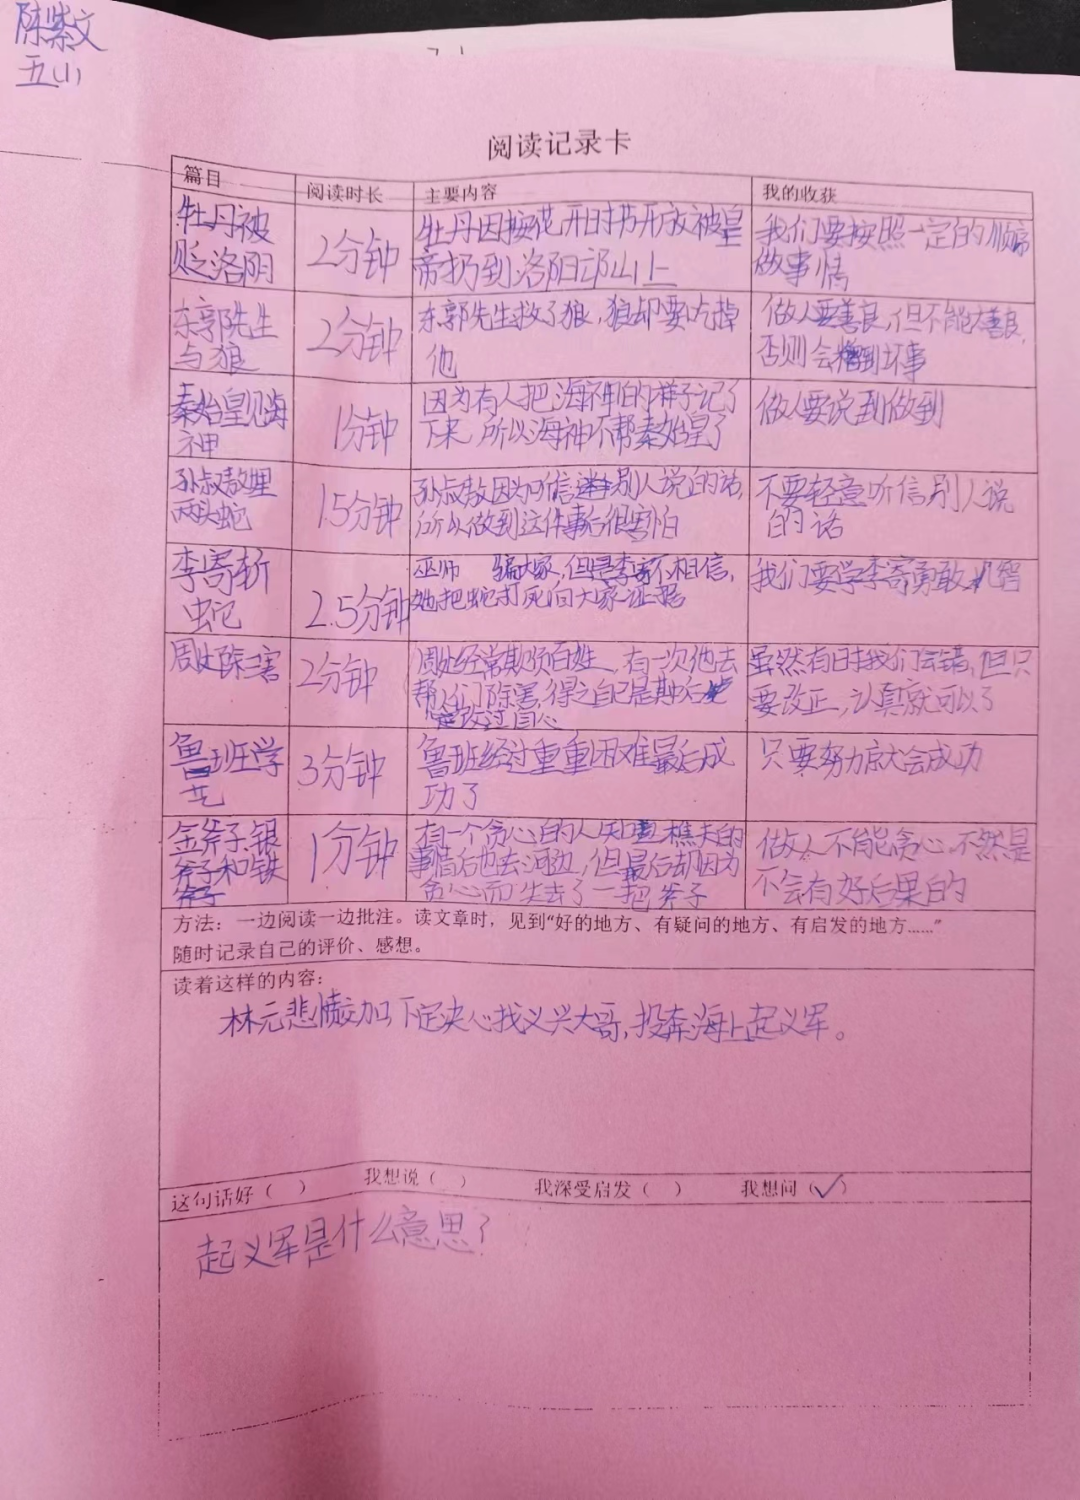 陈紫文
五(1)
阅读记录卡
篇目
阅读时长
主要内容
我的收获
牡丹被
贬洛阴
2分钟
牡丹因按花开时节开放被皇
帝扔到洛阳邙山上
我们要按照一定的顺序
做事情
东郭先生
与狼
2分钟
东郭先生救了狼,狼却要吃掉
他
做人要善良,但不能太善良,
否则会 到坏事
秦始皇见海
神
1分钟
因为有人把海神的样子记了
下来,所以海神不帮秦始皇了
做人要说到做到
孙叔敖埋
两头蛇
1.5分钟
孙叔敖因为听信 别人说的话,
所以做到这件事后很害怕
不要轻意听信别人说
的话
李寄斩
蛇
2.5分钟
巫师 骗大家,但是李寄不相信,
她把蛇打死向大家证
我们要学李寄勇敢,机智
周处除三害
2分钟
周处经常欺负百姓,有一次他去
帮人们除害,得之自己是 后
定改过自心
虽然有时我们会错,但只
要改正,认真就可以了
鲁班学
艺
3分钟
鲁班经过重重困难最后成
功了
只要努力就会成功
金斧子银
斧子和铁
斧子
1分钟
有一个贪心的人知道樵夫的
事情后也去河边,但最后却因为
贪心而失去了一把斧子
做人不能贪心,不然是
不会有好后果的
方法:一边阅读一边批注。读文章时,见到“好的地方、有疑问的地方、有启发的地方……”
随时记录自己的评价、感想。
读着这样的内容:
林元悲愤交加,下定决心找义兴大哥,投奔海上起义军。
这句话好( ) 我想说( ) 我深受启发( ) 我想问(✓)
起义军是什么意思?